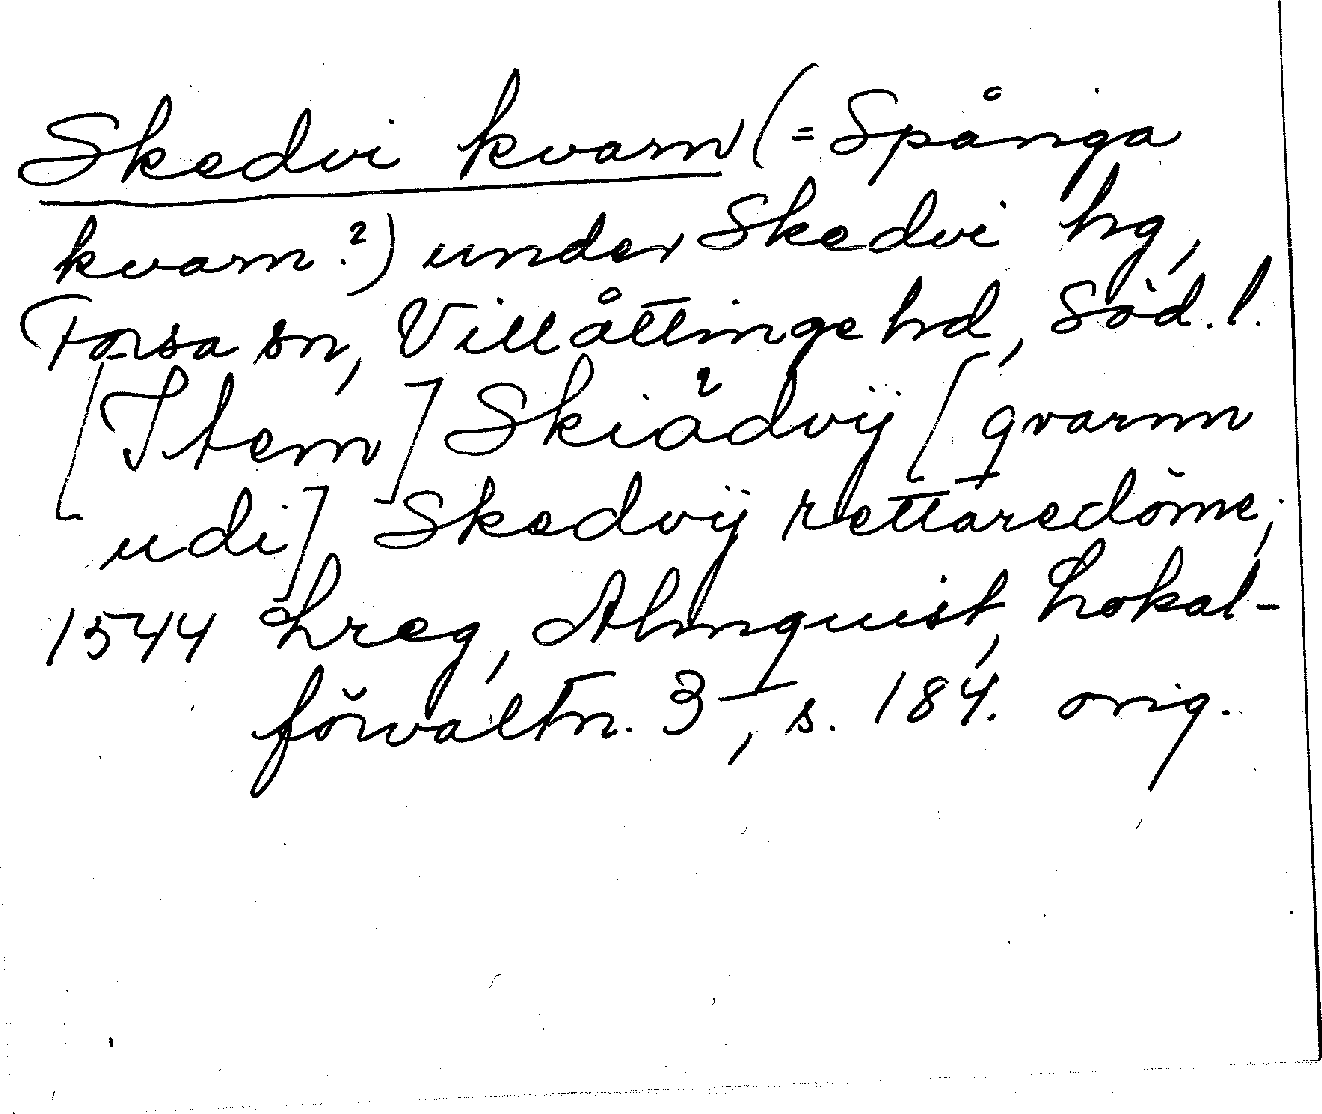 Skedvi kvarn (= Spånga
kvarn?) under Skedvi hg,
Forsa sn, Villåttinge hd, Söd. l.
[Item] Skiädvij [qvarnn
udi] Skedvij rettaredöme;
1544 hreg, Almquist, Lokal-
förvaltn. 3, s. 184. orig.